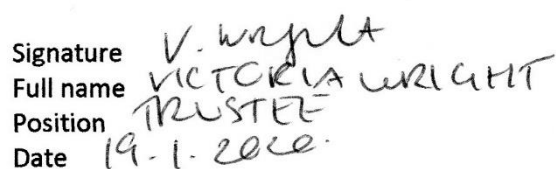 Signature V. Wright
Full name VICTORIA WRIGHT
Position TRUSTEE
Date 19.1.2020.